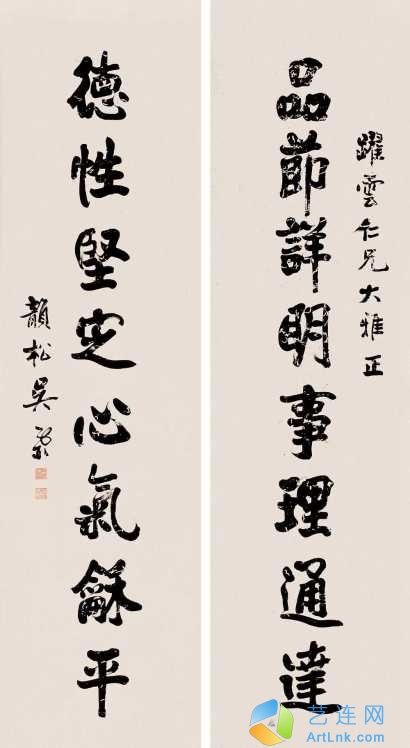 躍雲仁兄大雅正
品節詳明事理通達
德性堅定心氣龢平
韻松吳
艺连网
ArtLnk.com